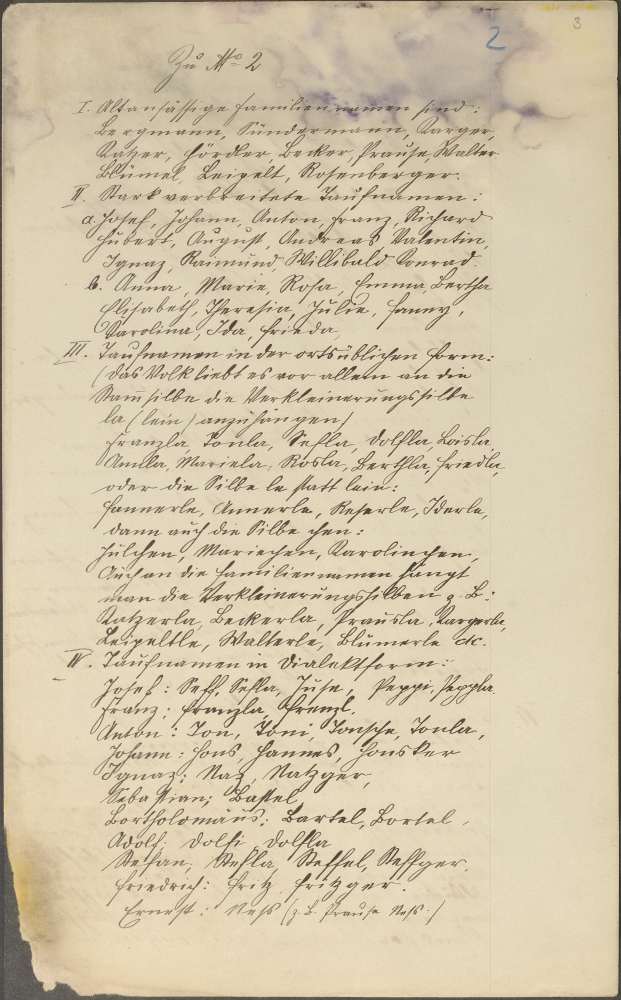 3
2
Zu No 2
I. Altansässige Familiennamen sind:
Bergmann, Sündermann, Karger,
Katzer, Hördler, Becker, Prause, Walter
Blümel, Leipelt, Rosenberger.
II. Stark verbreitete Taufnamen:
a. Josef, Johann, Anton, Franz, Richard
Hubert, August, Andreas, Valentin,
Ignaz, Raimund, Willibald, Konrad.
b. Anna, Marie, Rosa, Emma, Bertha
Elisabeth, Theresia, Julie, Fanny,
Karolina, Ida, Frieda,
III. Taufnamen in der ortsüblichen Form:
(das Volk liebt es vor allem an die
Stammsilbe die Verkleinerungssilbe
la (lein) anzuhängen)
Franzla, Tonla, Sefla, Dolfla, Loisla
Annla, Mariela, Rosla, Berthla, Friedla,
oder die Silbe le statt lein:
Fannerle, Annerle, Reserle, Iderle,
dann auch die Silbe chen:
Julchen, Mariechen, Karolinchen,
Auch an die Familiennamen hängt
man die Verkleinerungssilben z. B:
Katzerla, Beckerla, Prausla, Kargerle,
Leipeltle, Walterle, Blümerle etc.
IV. Taufnamen in Dialektform:
Josef: Seff, Sefla, Juse, Peppi, Peppla
Franz: Franzla, Frenzl.
Anton: Ton, Toni, Tonsche, Tonla,
Johann: Hons, Hannes, Honsker
Ignaz: Naz, Natzger,
Sebastian: Bastel
Bartholomäus: Bartel, Bortel,
Adolf: Dolfi, Dolfla
Stefan: Stefla, Steffel, Steffger,
Friedrich: Fritz, Fritzger.
Ernest: Nest (z. B. Prause Nest.)